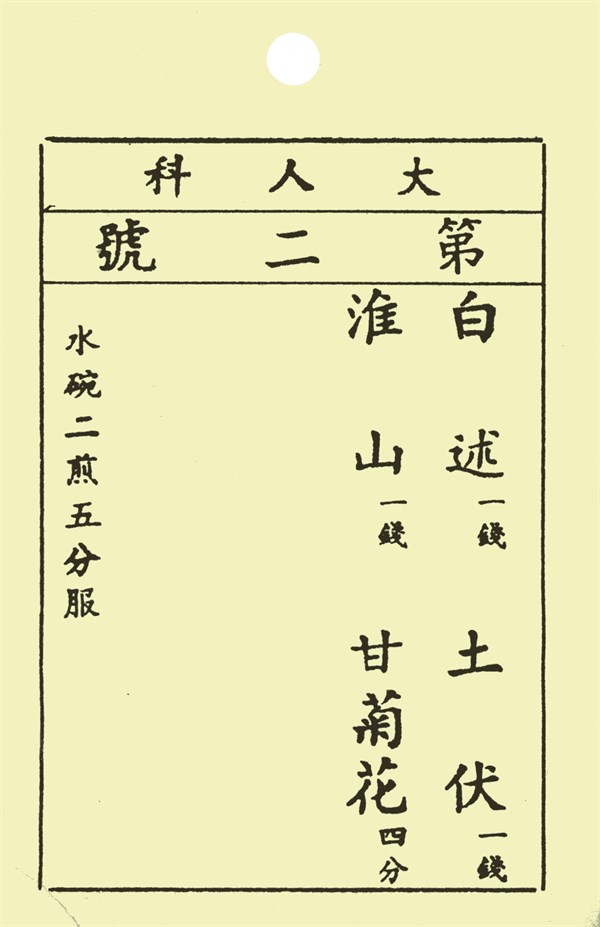 大人科
第二號
白述一錢 土伏一錢
淮山一錢 甘菊花四分
水碗二煎五分服